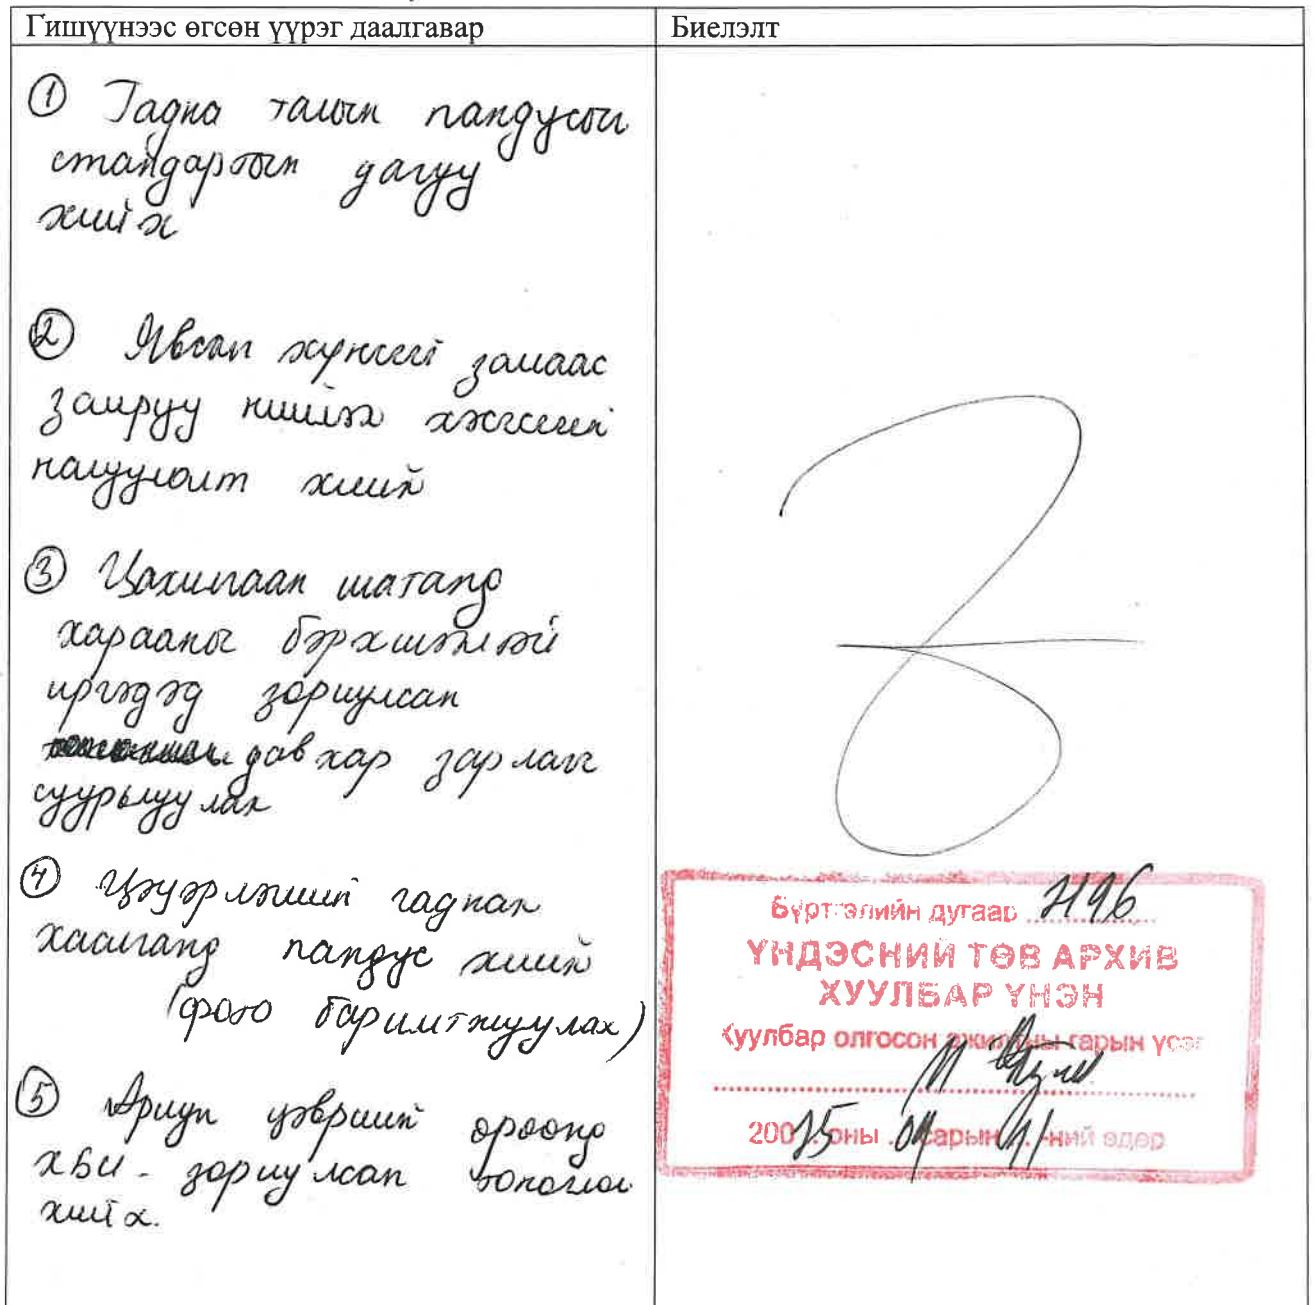 Гишүүнээс өгсөн үүрэг даалгавар
Биелэлт
① Гадна талын пандусыг
стандартын дагуу
хийх
② Явган хүний замаас
замруу нийлэх хэсгийн
налуулолт хийх
③ Цахилгаан шатанд
харааны бэрхшээлтэй
иргэдэд зориулсан
давхар зарлагч
суурьлуулах
④ Цэцэрлэгийн гаднах
хаалганд пандус хийх
(фото баримтжуулах)
⑤ Ариун цэврийн өрөөнд
ХБИ - зориулсан тоноглол
хийх.
Бүртгэлийн дугаар 7196
ҮНДЭСНИЙ ТӨВ АРХИВ
ХУУЛБАР ҮНЭН
Хуулбар олгосон ажилтны гарын үсэг
200 25 оны 04 сарын 11 -ний өдөр